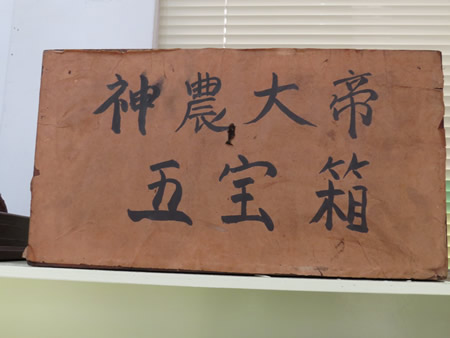 神農大帝
五宝箱